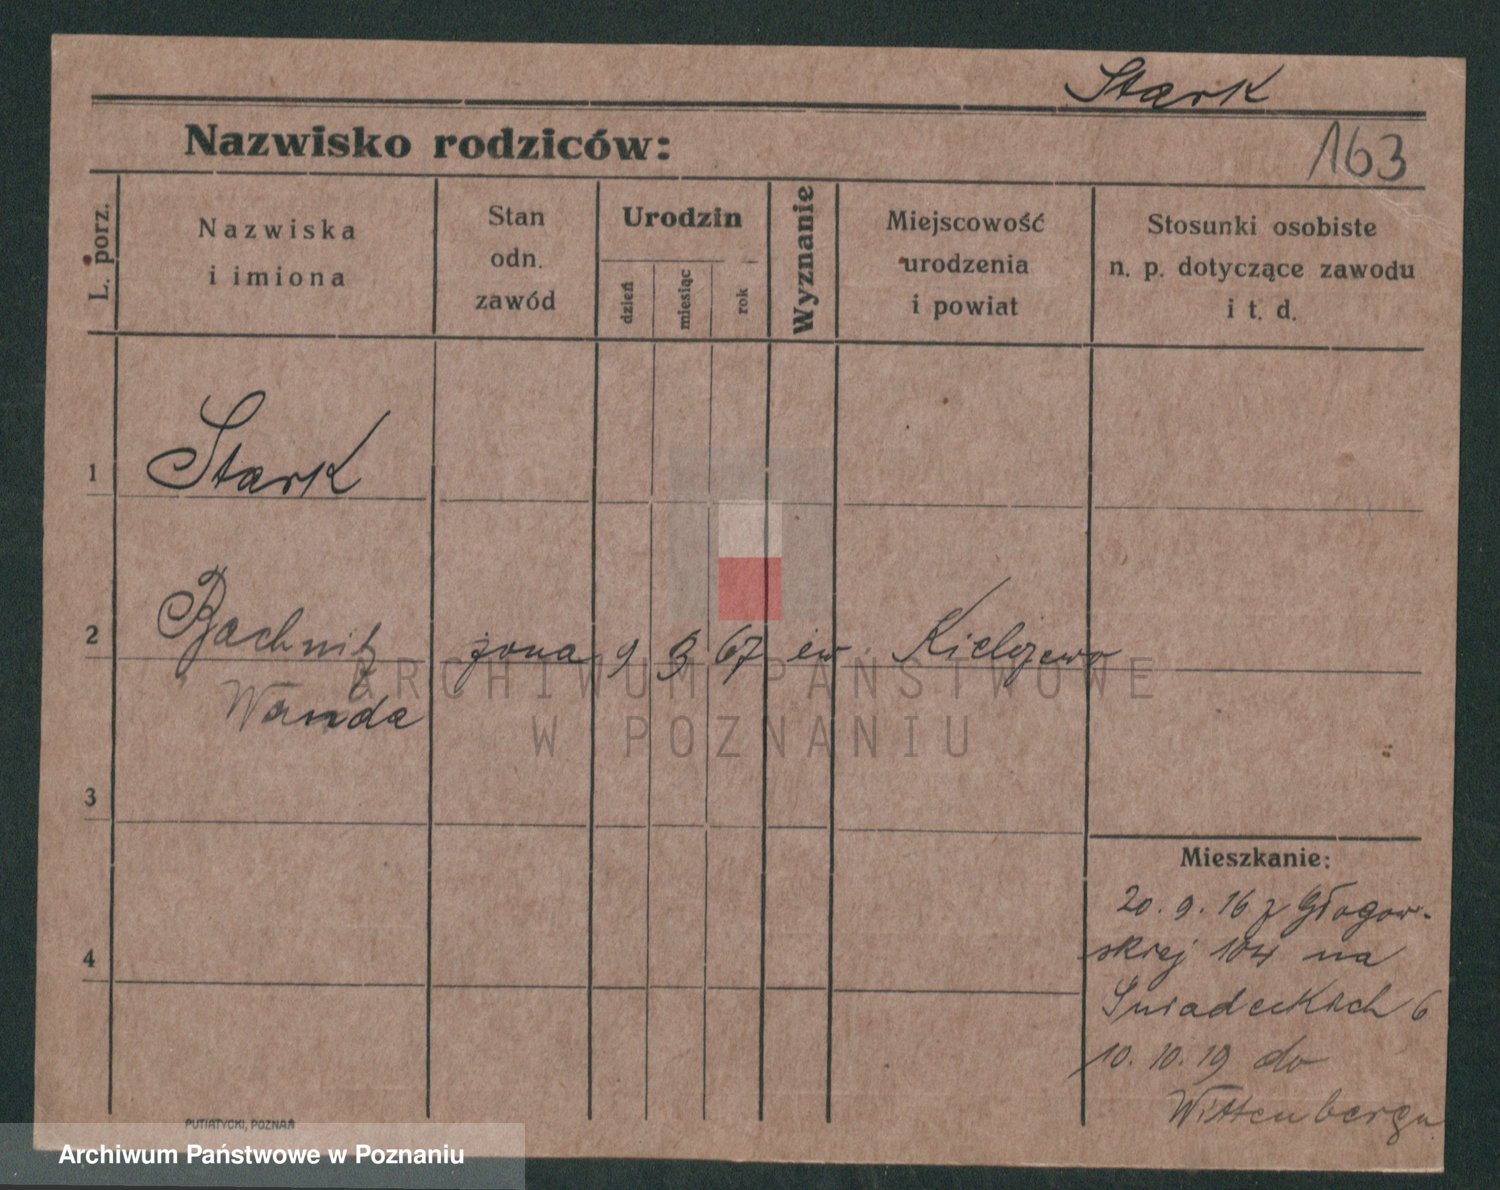 Stark
Nazwisko rodziców:
163
L. porz.
Nazwiska
i imiona
Stan
odn.
zawód
Urodzin
dzień
miesiąc
rok
Wyznanie
Miejscowość
urodzenia
i powiat
Stosunki osobiste
n. p. dotyczące zawodu
i t. d.
1
Stark
2
żona 9 3 67 ew.
Wanda
3
4
Mieszkanie:
20. 9. 16 z Głogow-
skiej 104 na
Śniadeckich 6
10. 10. 19 do
Wittenberga
PUTIATYCKI, POZNAŃ
ARCHIWUM PAŃSTWOWE
W POZNANIU
Archiwum Państwowe w Poznaniu